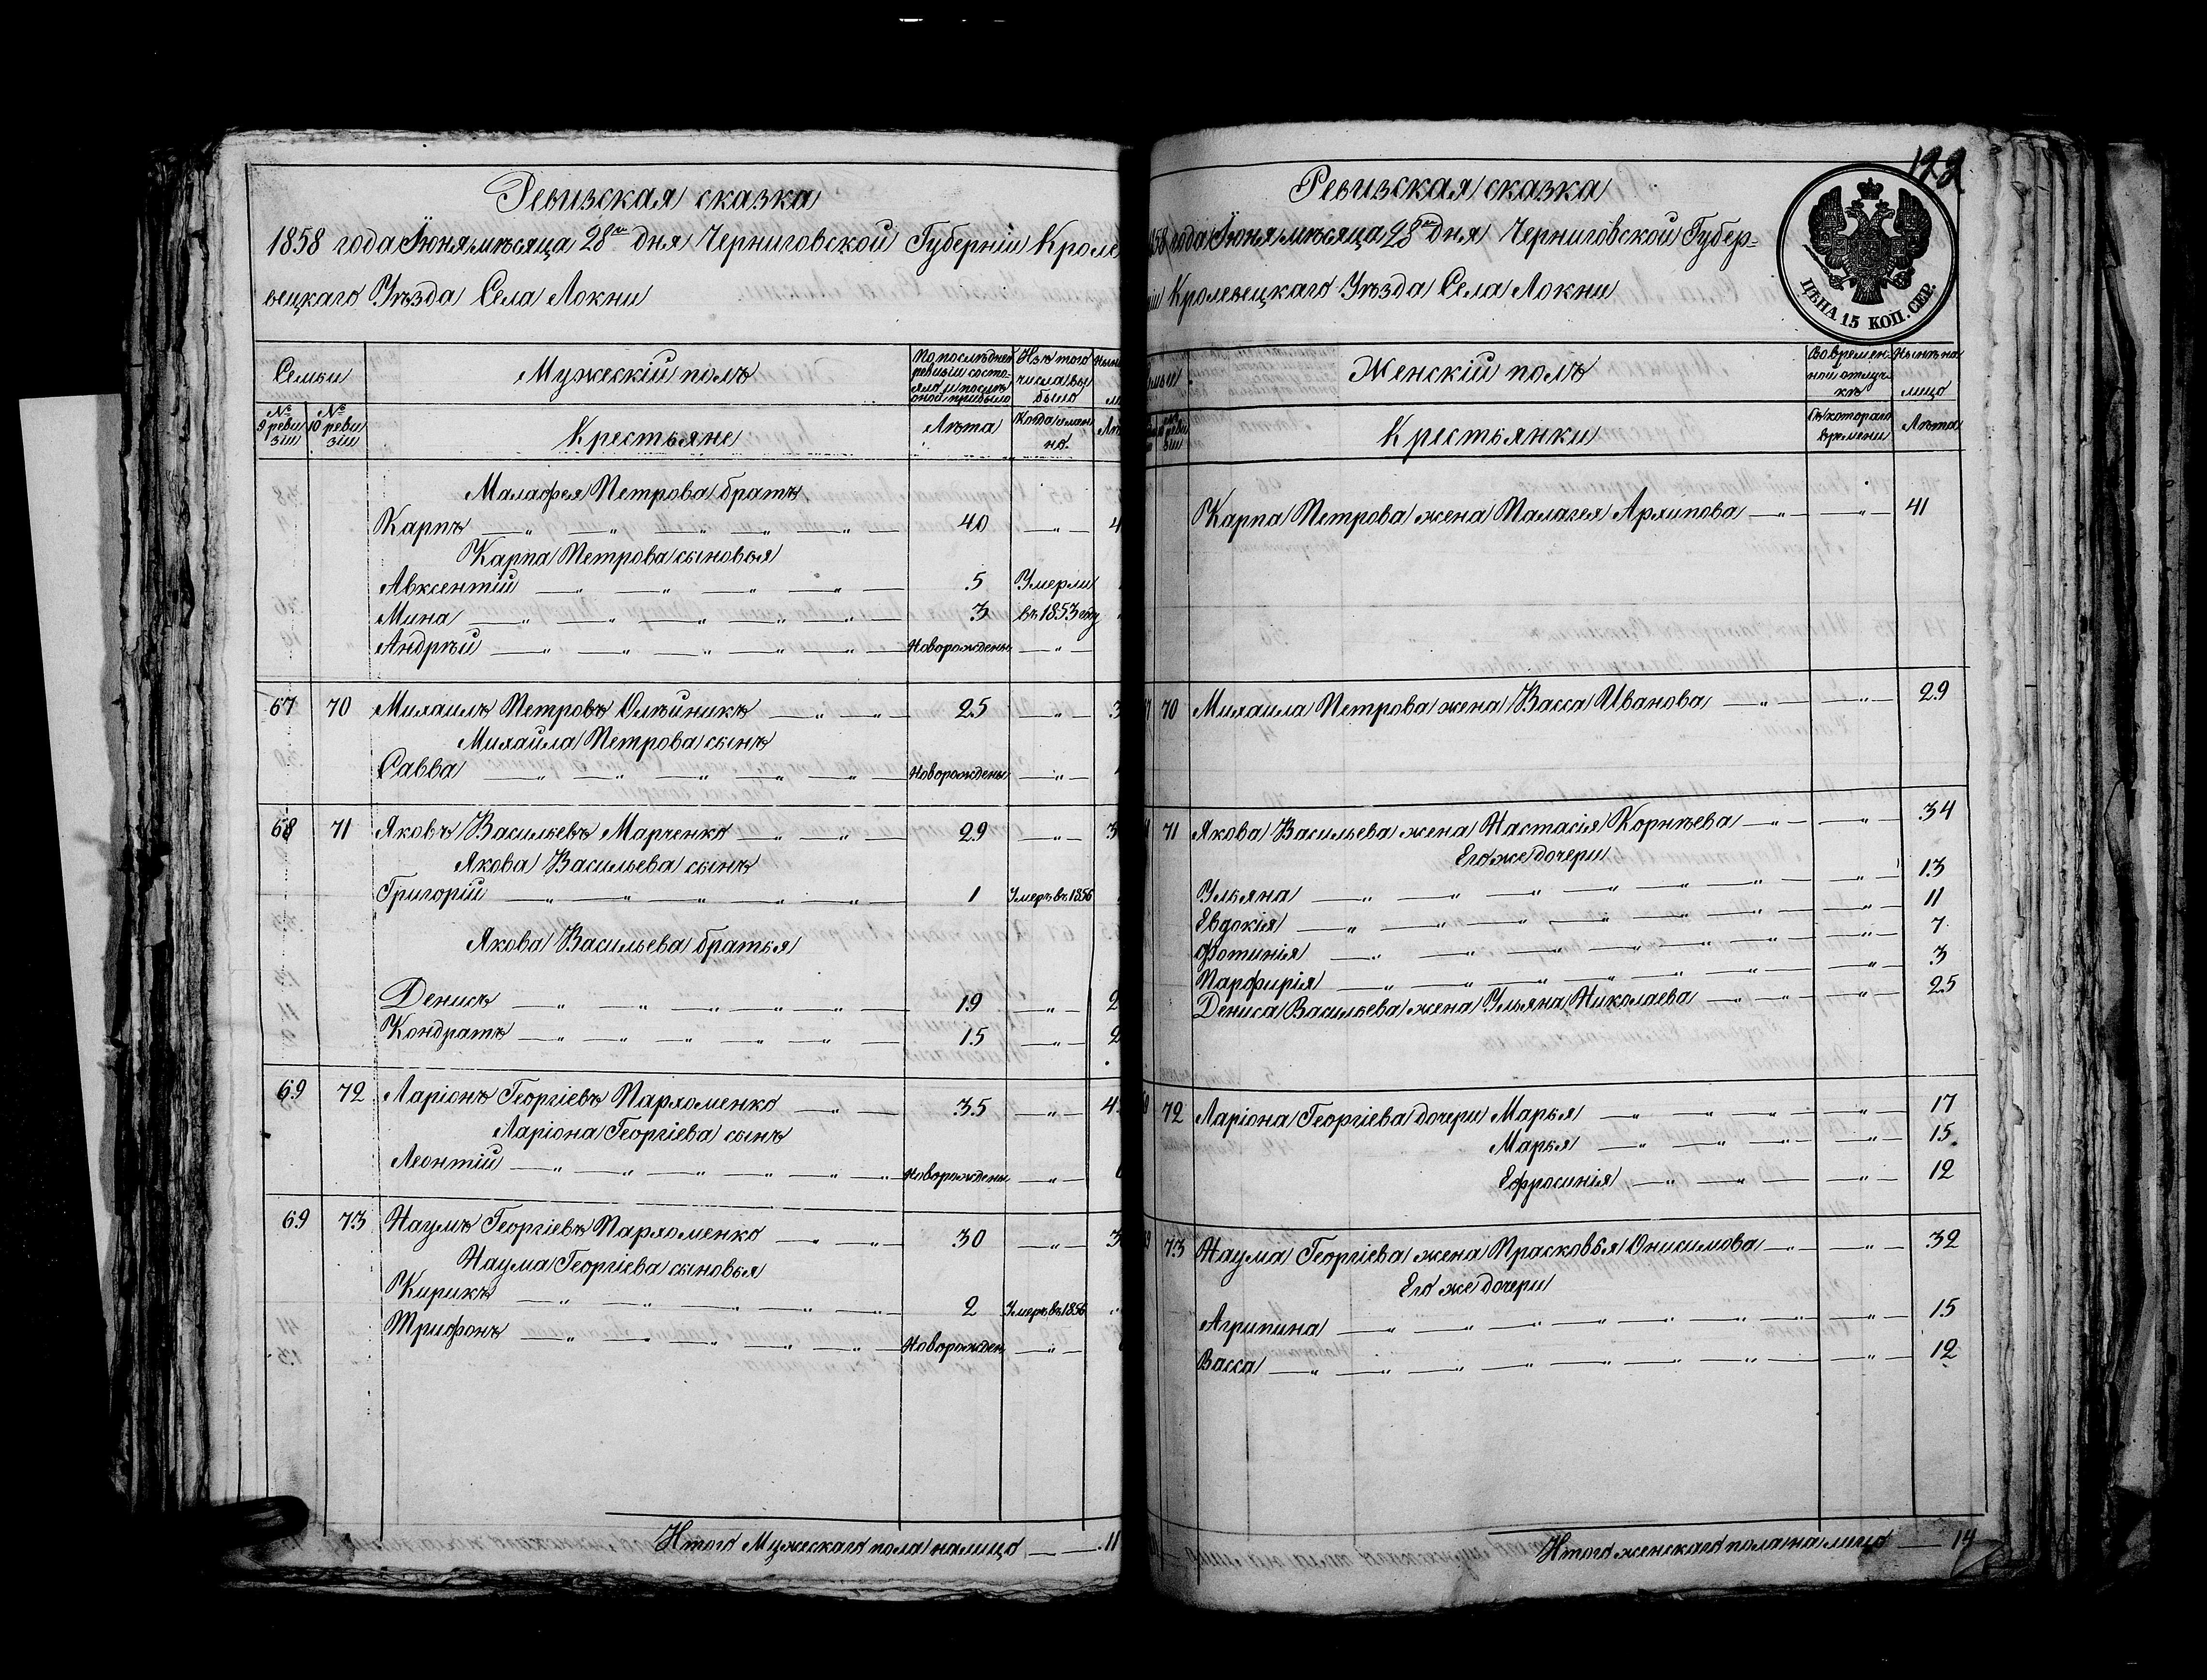 Ревизская сказка
1858 года Іюня мѣсяца 28го дня Черниговской Губерніи Кроле
вецкаго Уѣзда Села Локни
Семьи
Мужескій полъ
По послѣдней ревизіи состояло и послѣ оной прибыло
Изъ того числа выбыло
№ 9 ревизіи
№ 10 ревизіи
Крестьяне
Лѣта
Когда именно.
Малафея Петрова братъ
Карпъ 40 4
Карпа Петрова сыновья
Авксентій 5 Умерли
Мина 3 въ 1853 году
Андрѣй Новорожденъ
67 70 Михаилъ Петровъ Олѣйникъ 25 3
Михайла Петрова сынъ
Савва Новорожденъ
68 71 Яковъ Васильевъ Марченко 29 3
Якова Васильева сынъ
Григорій 1 Умеръ въ 1856
Якова Васильева братья
Денисъ 19 2
Кондратъ 15 2
69 72 Ларіонъ Георгіевъ Пархоменко 35 4
Ларіона Георгіева сынъ
Леонтій Новорожденъ
69 73 Наумъ Георгіевъ Пархоменко 30 3
Наума Георгіева сыновья
Кирикъ 2 Умеръ въ 1856
Трифонъ Новорожден
Итого Мужескаго пола налицо 11
Ревизская сказка
858 года Іюня мѣсяца 28го дня Черниговской Губер-
ніи Кролевецкаго Уѣзда Села Локни
ЦѢНА 15 КОП. СЕР.
Женскій полъ
Во временной отлучкѣ
Нынѣ на лицо
Крестьянки
Съ котораго времени
Лѣта
Карпа Петрова жена Палагея Архипова 41
70 Михаила Петрова жена Васса Иванова 29
71 Якова Васильева жена Настасія Корнѣева 34
Его же дочери
Ульяна 13
Евдокія 11
Фотинія 7
Парфирія 3
Дениса Васильева жена Ульяна Николаева 25
72 Ларіона Георгіева дочери Марья 17
Марья 15
Ефросинія 12
73 Наума Георгіева жена Прасковья Онисимова 32
Его же дочери
Агрипина 15
Васса 12
Итого женскаго пола на лицо 14